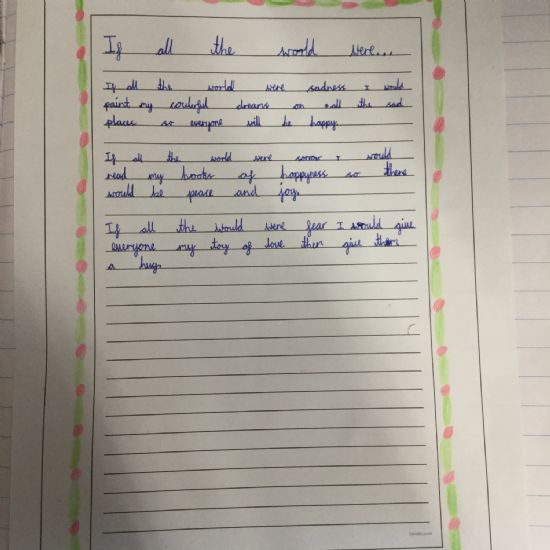 If all the world were...
If all the world were sadness I would
paint my coulerful dreams on all the sad
places so everyone will be happy.
If all the world were sorrow I would
read my books of happyness so there
would be peace and joy.
If all the would were fear I would give
everyone my toy of love then give them
a hug.